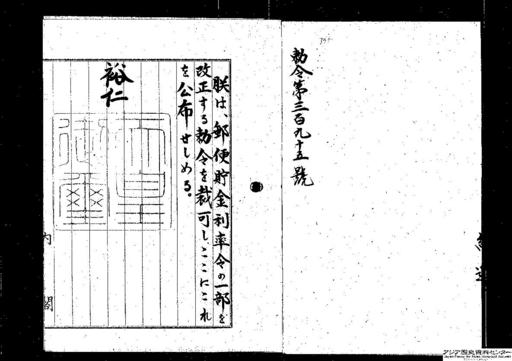 勅令第三百九十五號
朕は、郵便貯金利率令の一部を
改正する勅令を裁可し、ここにこれ
を公布せしめる。
裕仁
天皇御璽
内閣
アジア歴史資料センター